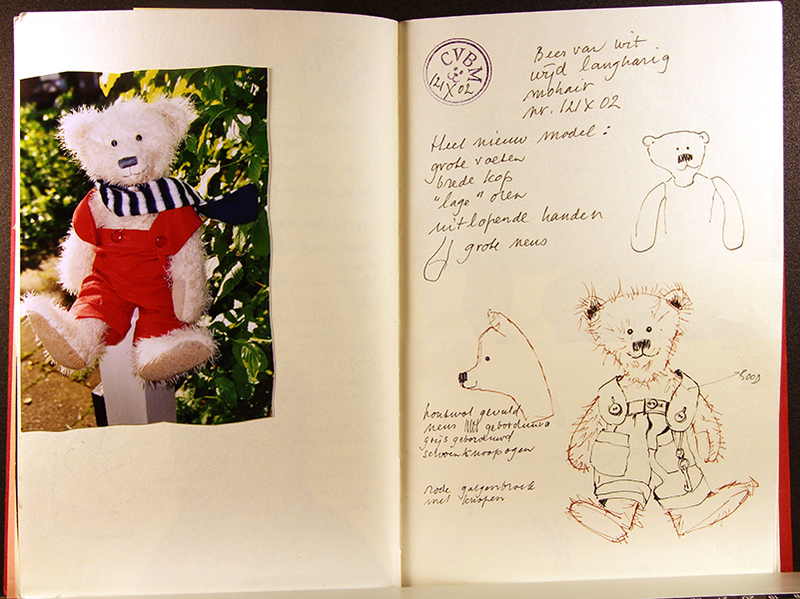 CVBM
121X02
Beer van wit
wijd langharig
mohair
nr. 121X02
Heel nieuw model:
grote voeten
brede kop
"lage" oren
uitlopende handen
grote neus
ROOD
houtwol gevuld
neus geborduurd
grijs geborduurd
schoenknoopogen
rode galgenbroek
met knopen